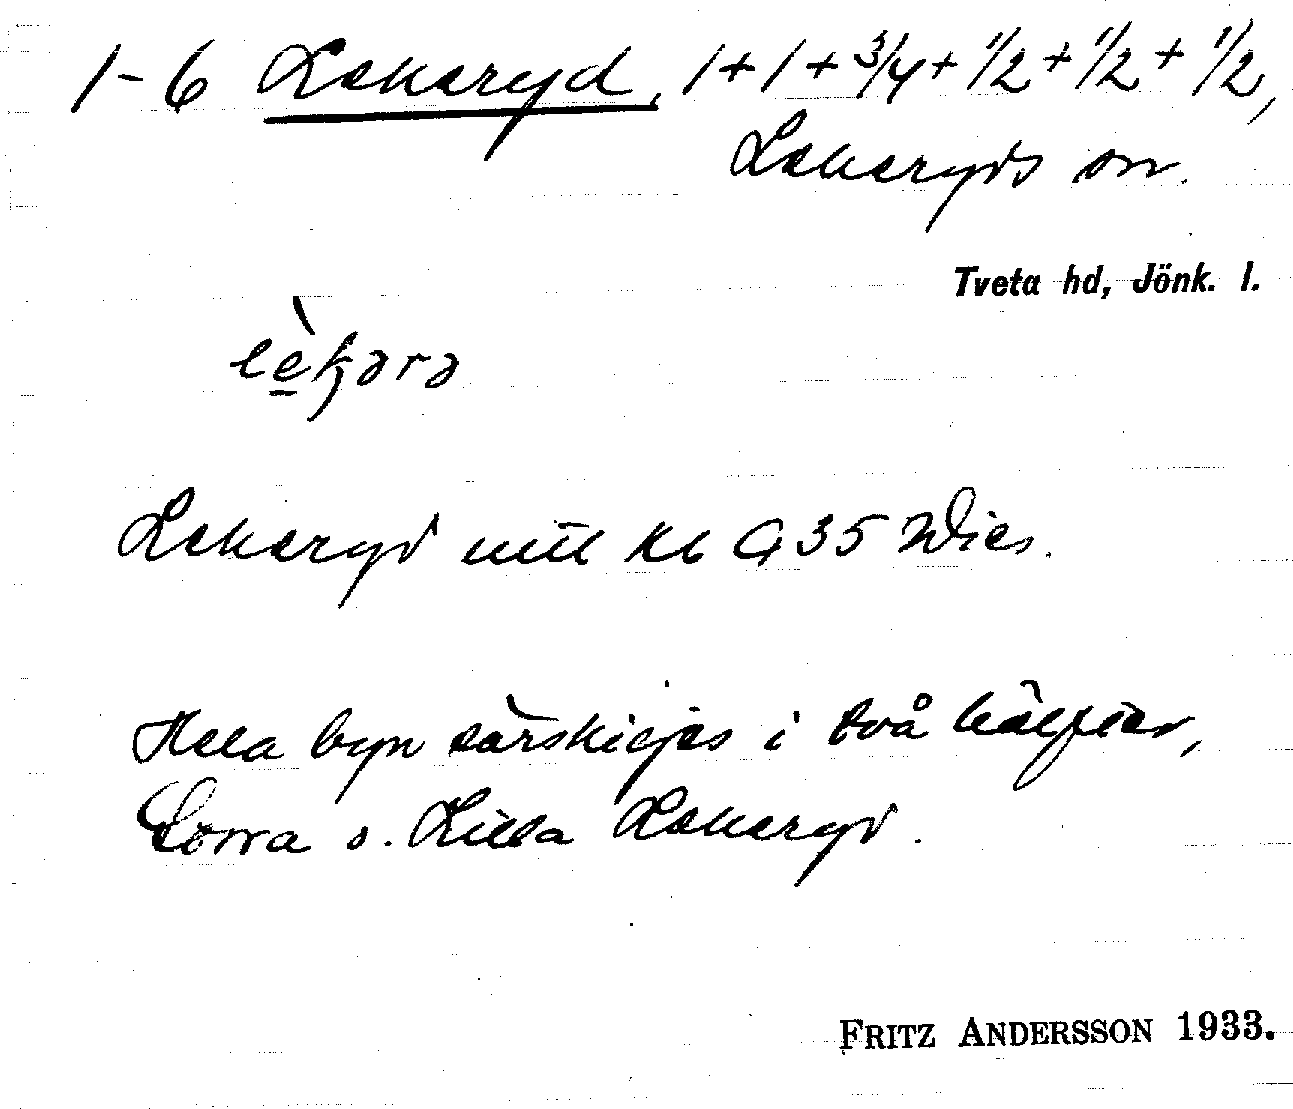 1-6 Lekeryd, 1+1+3/4+1/2+1/2+1/2,
Lekeryds sn.
Tveta hd, Jönk. l.
Lekeryd uttl
Hela byn särskiljes i två hälfter,
Storra o. Lilla Lekeryd.
FRITZ ANDERSSON 1933.